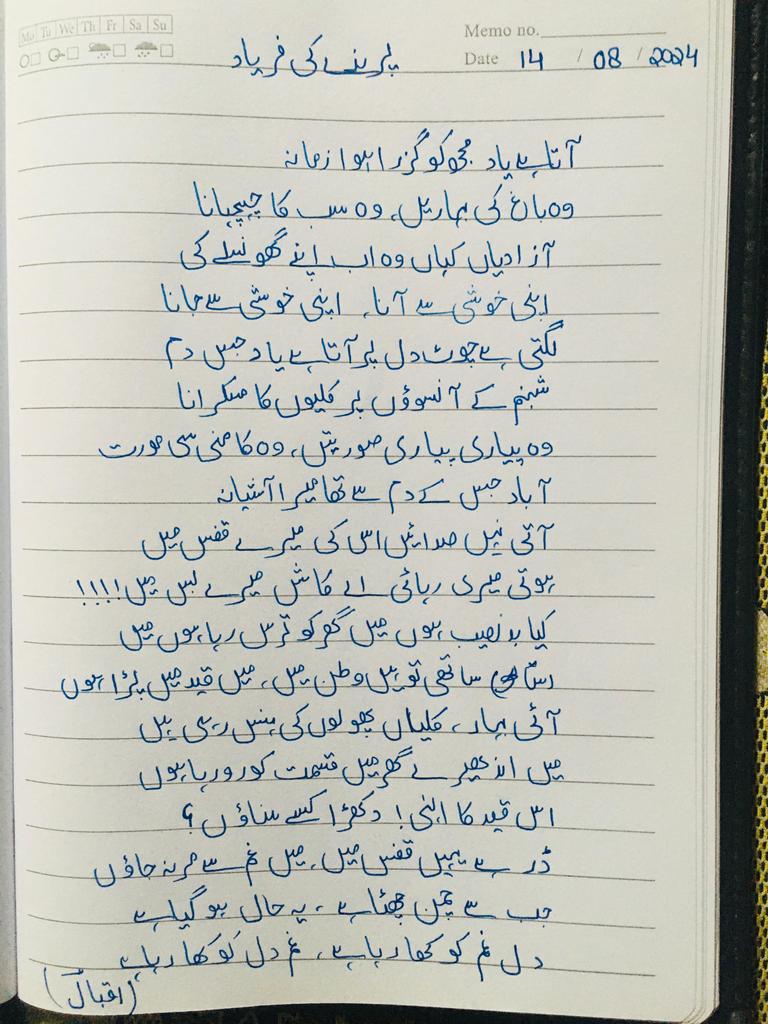 Mo Tu We Th Fr Sa Su
Memo no.
Date 14 / 08 / 2024
پرندے کی فریاد
آتا ہے یاد مجھ کو گزرا ہوا زمانہ
وہ باغ کی بہاریں، وہ سب کا چہچہانا
آزادیاں کہاں وہ اب اپنے گھونسلے کی
اپنی خوشی سے آنا، اپنی خوشی سے جانا
لگتی ہے چوٹ دل پر آتا ہے یاد جس دم
شبنم کے آنسوؤں پر کلیوں کا مسکرانا
وہ پیاری پیاری صورتیں، وہ کامنی سی مورت
آباد جس کے دم سے تھا میرا آشیانہ
آتی نہیں صدائیں اس کی میرے قفس میں
ہوتی میری رہائی اے کاش میرے بس میں!!!!
کیا بدنصیب ہوں میں گھر کو ترس رہا ہوں میں
ساتھی تو ہیں وطن میں، میں قید میں پڑا ہوں
آئی بہار، کلیاں پھولوں کی ہنس رہی ہیں
میں اندھیرے گھر میں قسمت کو رو رہا ہوں
اس قید کا الہٰی! دکھڑا کسے سناؤں؟
ڈر ہے یہیں قفس میں، میں غم سے مر نہ جاؤں
جب سے چمن چھٹا ہے، یہ حال ہو گیا ہے
دل غم کو کھا رہا ہے، غم دل کو کھا رہا ہے
(اقبالؒ)